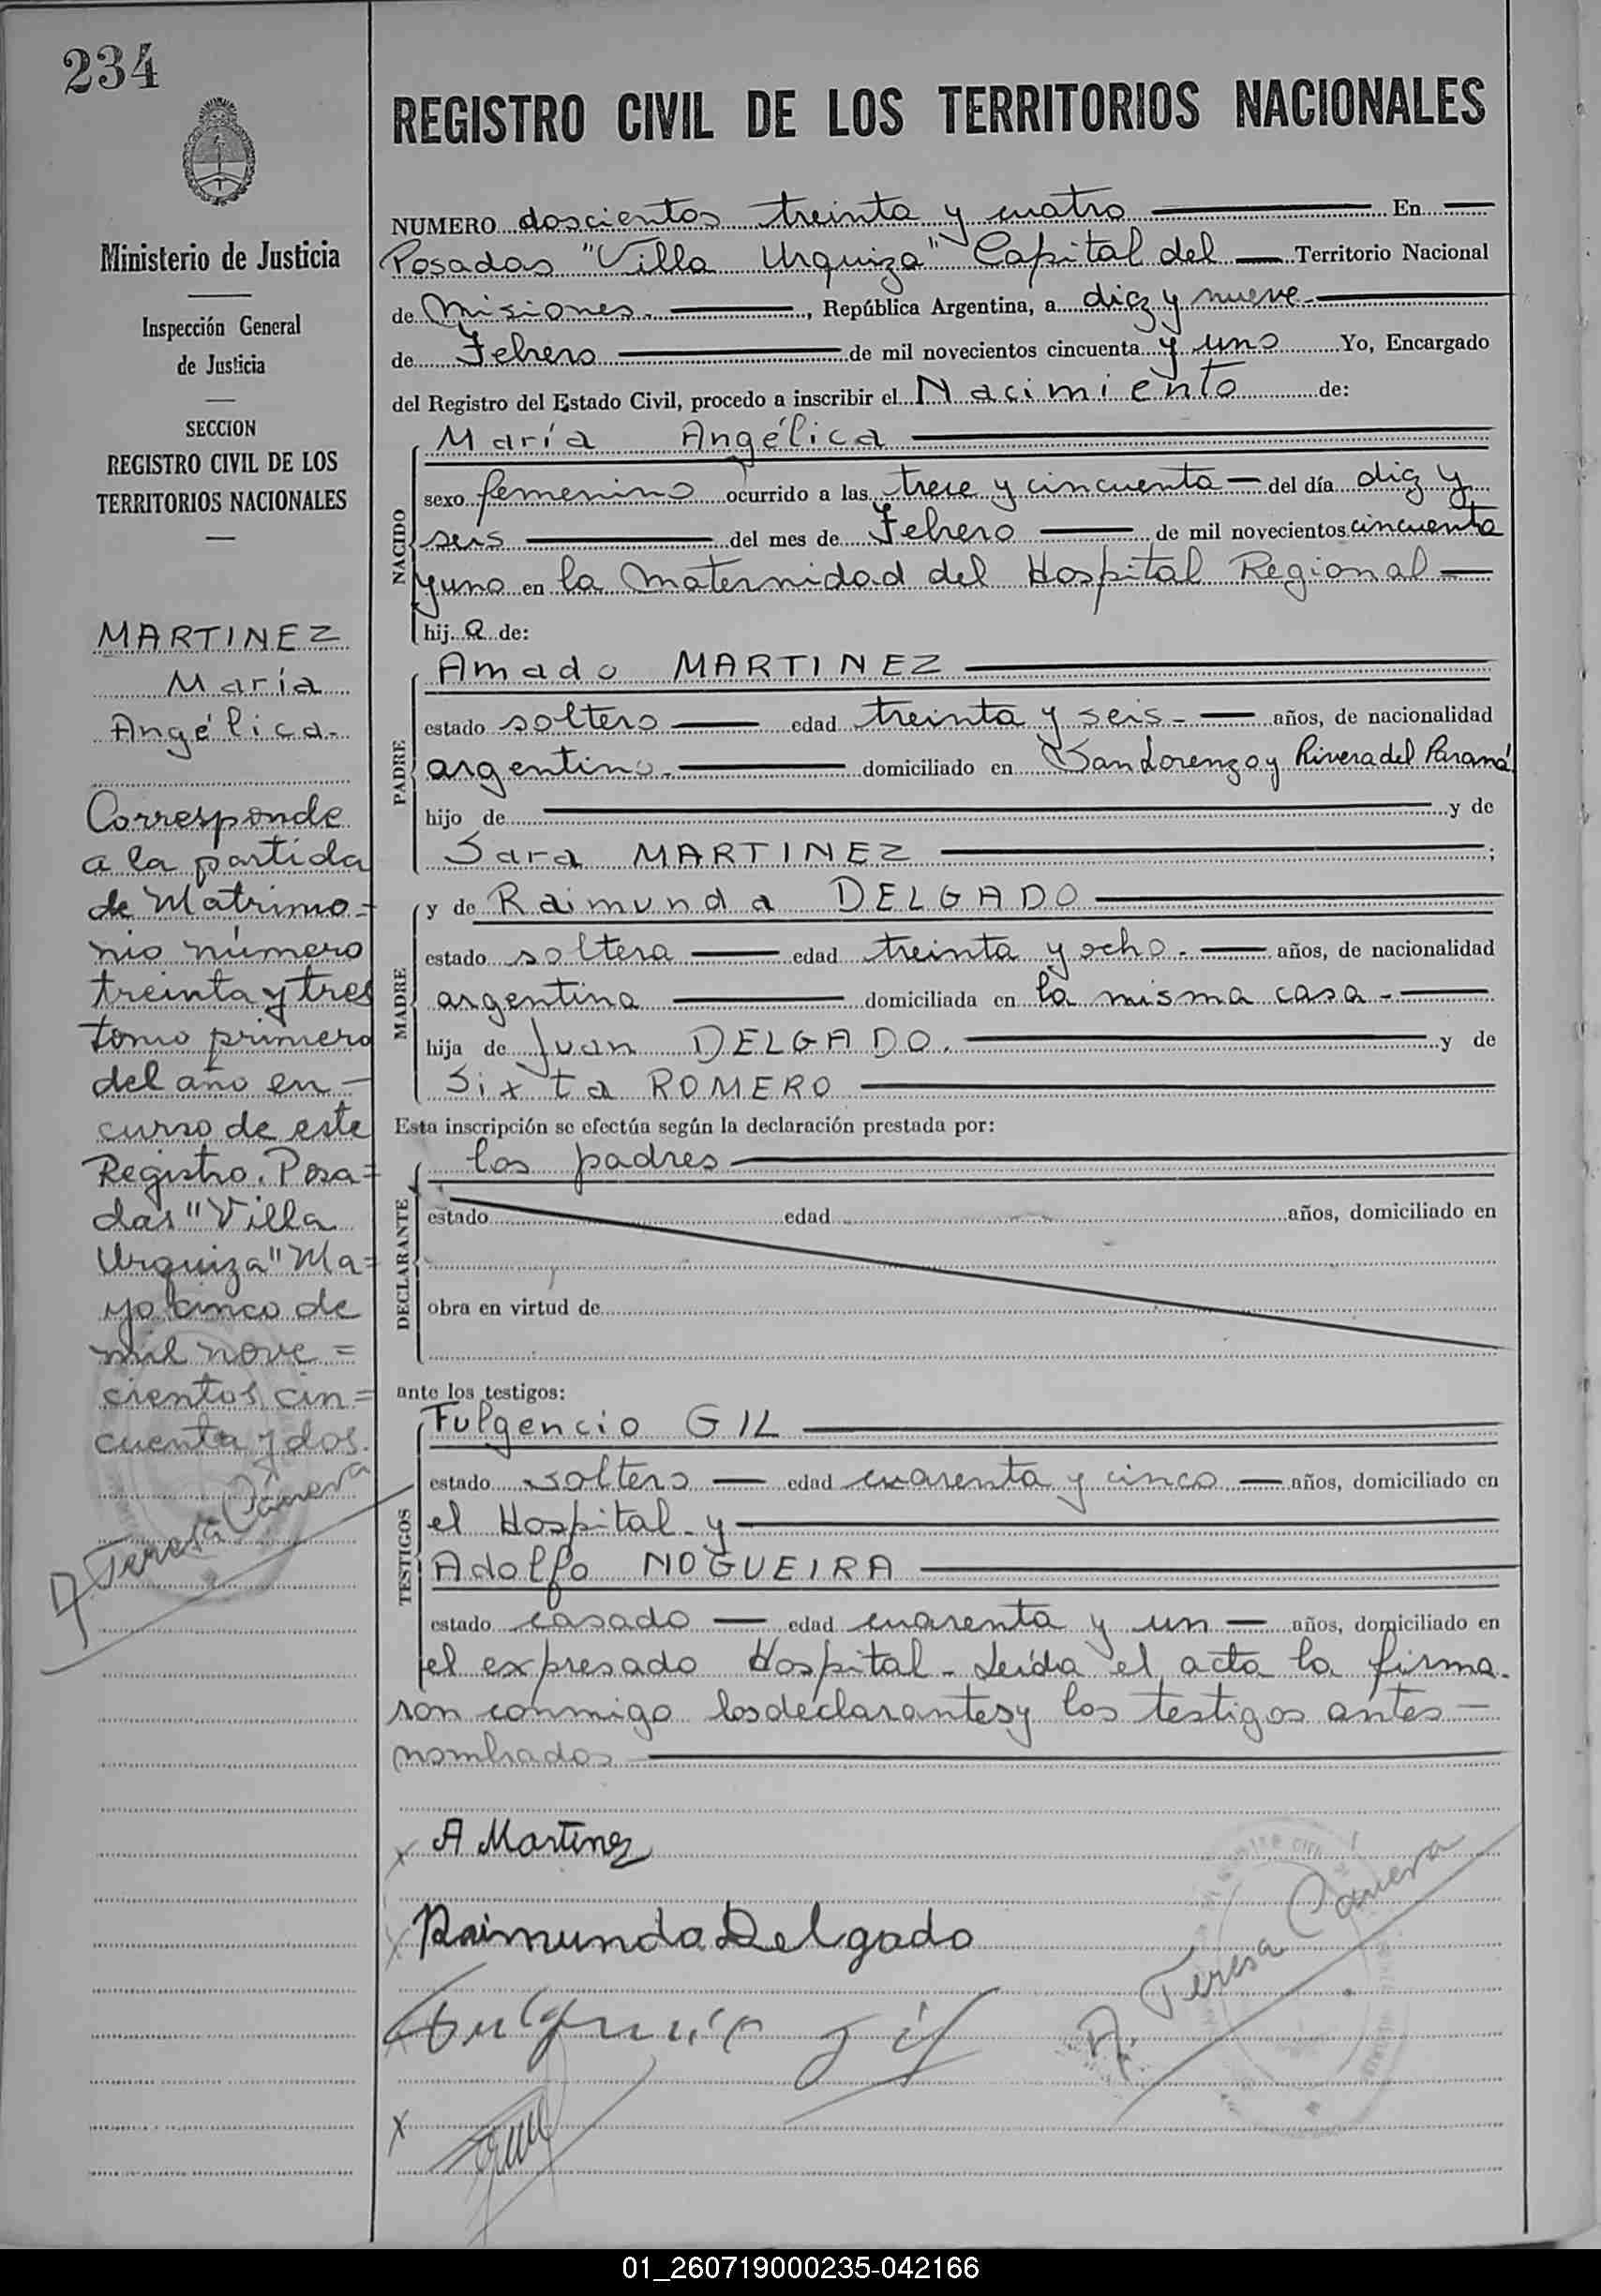 234
Ministerio de Justicia
Inspección General
de Justicia
SECCION
REGISTRO CIVIL DE LOS
TERRITORIOS NACIONALES
MARTINEZ
María
Angélica.
Corresponde
a la partida
de Matrimo=
nio número
treinta y tres
tomo primero
del año en
curso de este
Registro. Posa=
das "Villa
Urquiza" Ma=
yo cinco de
mil nove=
cientos cin=
cuenta y dos.
A. Teresa Cánera
REGISTRO CIVIL DE LOS TERRITORIOS NACIONALES
NUMERO doscientos treinta y cuatro En
Posadas "Villa Urquiza" Capital del Territorio Nacional
de Misiones. , República Argentina, a diez y nueve
de Febrero de mil novecientos cincuenta y uno Yo, Encargado
del Registro del Estado Civil, procedo a inscribir el Nacimiento de:
NACIDO
María Angélica
sexo femenino ocurrido a las trece y cincuenta del día diez y
seis del mes de Febrero de mil novecientos cincuenta
y uno en la Maternidad del Hospital Regional
hij a de:
PADRE
Amado MARTINEZ
estado soltero edad treinta y seis años, de nacionalidad
argentino. domiciliado en San Lorenzo y Rivera del Paraná
hijo de y de
Sara MARTINEZ ;
MADRE
y de Raimunda DELGADO
estado soltera edad treinta y ocho. años, de nacionalidad
argentina domiciliada en la misma casa.
hija de Juan DELGADO. y de
Sixta ROMERO
Esta inscripción se efectúa según la declaración prestada por:
DECLARANTE
los padres
estado edad años, domiciliado en
obra en virtud de
ante los testigos:
TESTIGOS
Fulgencio GIL
estado soltero edad cuarenta y cinco años, domiciliado en
el Hospital y
Adolfo NOGUEIRA
estado casado edad cuarenta y un años, domiciliado en
el expresado Hospital. Leída el acta la firma-
ron conmigo los declarantes y los testigos antes
nombrados
A Martinez
Raimunda Delgado
A. Teresa Cánera
Fulgencio Gil
01_260719000235-042166